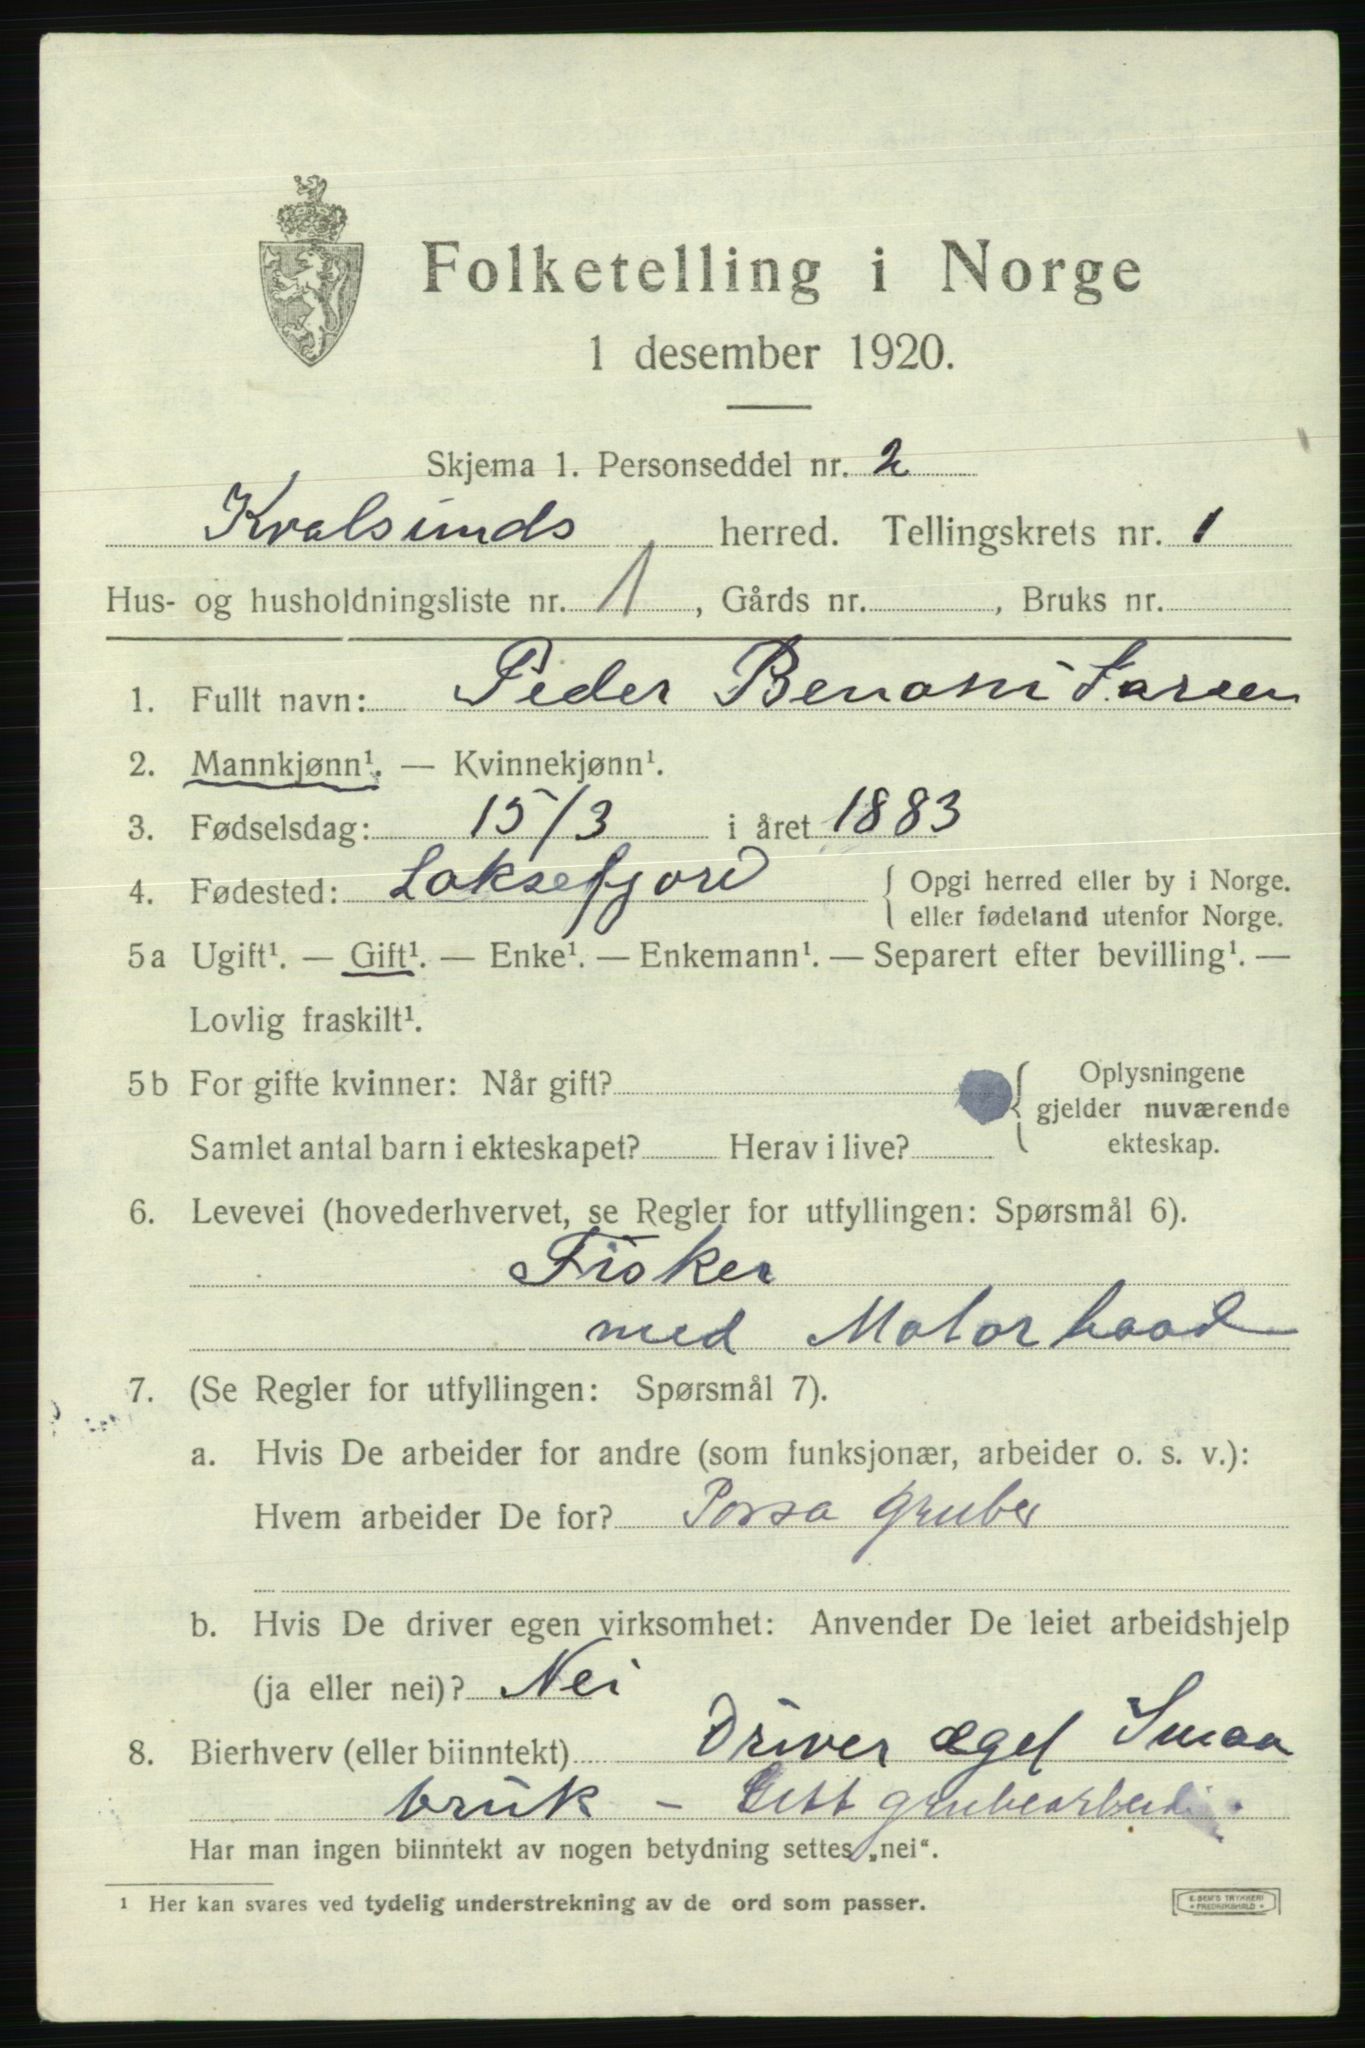 Folketelling i Norge
1 desember 1920.
Skjema 1. Personseddel nr. 2
Kvalsunds herred. Tellingskrets nr. 1
Hus- og husholdningsliste nr. 1, Gårds nr. , Bruks nr.
1. Fullt navn: Peder Benoni Larsen
2. Mannkjønn¹. — Kvinnekjønn¹.
3. Fødselsdag: 15/3 i året 1883
4. Fødested: Laksefjord { Opgi herred eller by i Norge.
eller fødeland utenfor Norge.
5a Ugift¹. — Gift¹. — Enke¹. — Enkemann¹. — Separert efter bevilling¹. —
Lovlig fraskilt¹.
5b For gifte kvinner: Når gift? { Oplysningene
gjelder nuværende
Samlet antal barn i ekteskapet? Herav i live? ekteskap.
6. Levevei (hovederhvervet, se Regler for utfyllingen: Spørsmål 6).
Fisker
med Motorbaad
7. (Se Regler for utfyllingen: Spørsmål 7).
a. Hvis De arbeider for andre (som funksjonær, arbeider o. s. v.):
Hvem arbeider De for? Porsa Gruber
b. Hvis De driver egen virksomhet: Anvender De leiet arbeidshjelp
(ja eller nei)? Nei
8. Bierhverv (eller biinntekt) Driver eget Smaa
bruk – Litt grubearbeid.
Har man ingen biinntekt av nogen betydning settes „nei“.
¹ Her kan svares ved tydelig understrekning av de ord som passer.
E. SEM'S TRYKKERI
FREDRIKSHALD